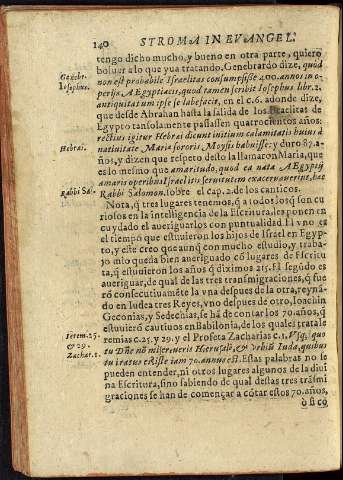 140 STROMA IN EVANGEL.
tengo dicho mucho, y bueno en otra parte, quiero
boluer a lo que yua tratando. Genebrardo dize, quòd
Genebr. non est probabile Israelitas consumpsisse 400. annos in o-
Iosephus. peribꝰ Aegyptiacis, quod tamen scribit Iosephus libr. 2.
antiquitatum ipse se labefacit, en el c. 6. adonde dize,
que desde Abrahan hasta la salida de los Israelitas de
Egypto tansolamente passassen quatrocientos años:
rectius igitur Hebræi dicunt initium calamitatis huius à
Hebræi. natiuitate Mariæ sororis Moysis habuisse: y duro 87. a-
ños, y dizen que respeto desto la llamaron Maria, que
es lo mesmo que amaritudo, quod ea nata Aegyptij
amaris operibus Israelitis seruitutem exacerbauerint, hæc
Rabbi Sal. Rabbi Salomon. sobre el cap. 2. de los canticos.
Nota, q̃ tres lugares tenemos, q̃ a todos los q̃ son cu
riosos en la inteligencia de la Escritura, les ponen en
cuydado el aueriguarlos con puntualidad. El vno es
el tiempo que estuuieron los hijos de Israel en Egyp-
to, y este creo que aunq̃ con mucho estudio, y traba-
jo mio queda bien aueriguado cõ lugares de Escritu
ra, q̃ estuuieron los años q̃ diximos 215. El segũdo es
aueriguar, de qual de las tres transmigraciones, q̃ fue
rõ consecutiuamẽte la vna despues de la otra, reynã-
do en Iudea tres Reyes, vno despues de otro, Ioachin
Geconias, y Sedechias, se hã de contar los 70. años, q̃
estuuierõ cautiuos en Babilonia, de los quales trata Ie
Ierem. 25. remias c. 25. y 29. y el Profeta Zacharias c. 1. Vsq; quo
& 29. tu Dñe nõ misereueris Hierusalẽ, & vrbiũ Iuda, quibus
Zachar. 1. tu iratus es? Iste iam 70. annus est. Estas palabras no se
pueden entender, ni otros lugares algunos de la diui
na Escritura, sino sabiendo de qual destas tres trãsmi
graciones se han de començar a cõtar estos 70. años,
ò si cõ